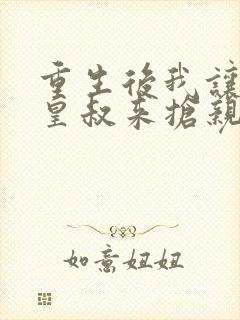 重生後我讓
皇叔來搶親
如意妞妞